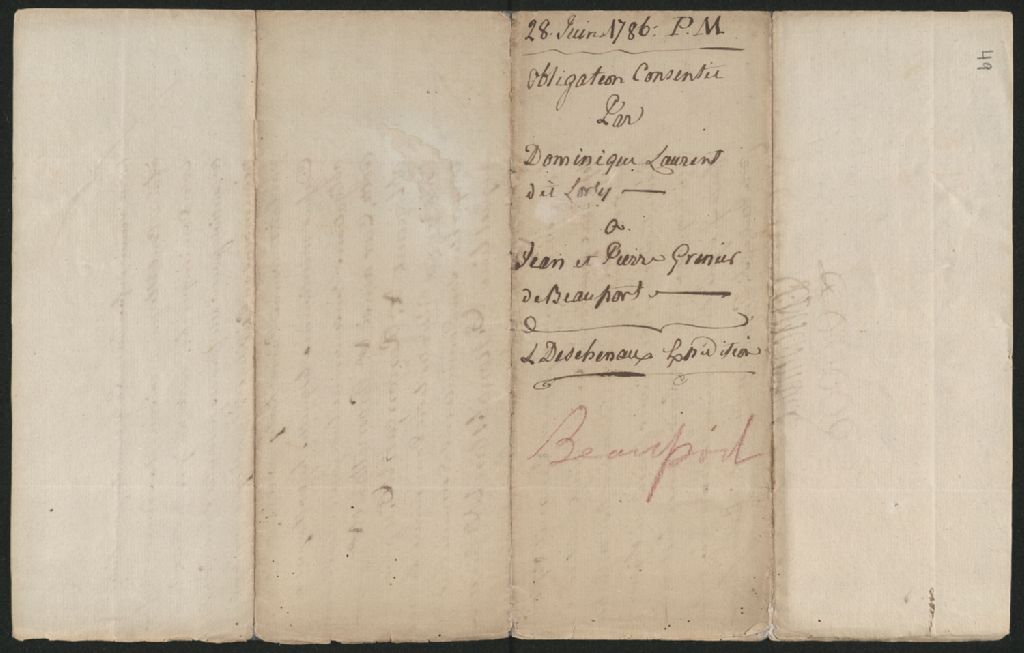 28. Juin. 1786: P. M.
Obligation Consentie
Par
Dominique Laurent
dit Lorty
a
Jean et Pierre Grenier
de Beauport
L Deschenaux Expédition
Beauport
49